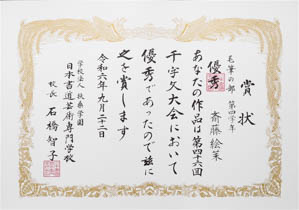 賞状
毛筆の部 第四学年
優秀
斎藤絵茉
あなたの作品は第四十六回
千字文大会において
優秀であったので茲に
之を賞します
令和六年九月二十二日
学校法人 扶桑学園
日本書道芸術専門学校
校長 石橋智子